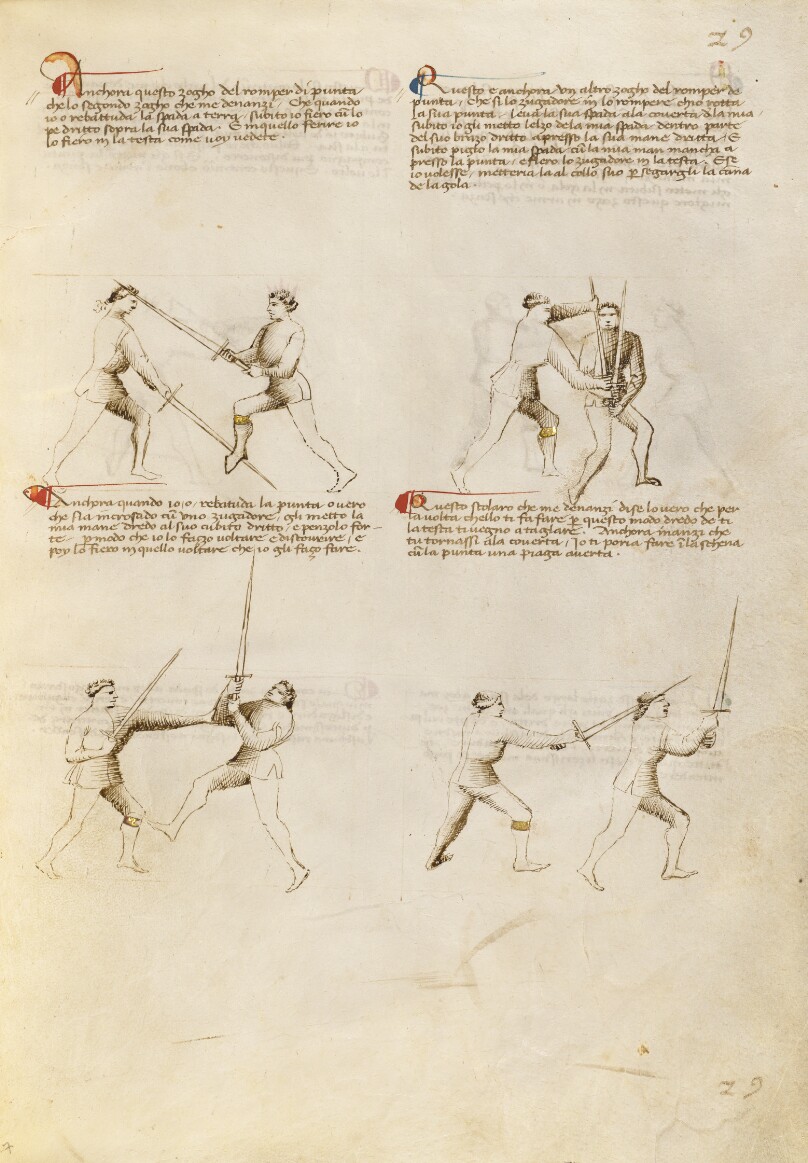 29
Anchora questo zogho del romper di punta
che lo segondo zogho che me denanzi. Che quando
io o rebattuda la spada a terra / subito io fiero cū lo
pe dritto sopra la sua spada. E in quello ferire io
lo fiero in la testa come uoy uedete.
Questo e anchora un altro zogho del romper de
punta / che si lo zugadore in lo rompere ch'io o rotta
la sua punta / leua la sua spada ala couerta dla mia /
subito io gli metto l'elzo de la mia spada dentro parte
del suo brazo dritto apresso la sua mane dritta / E
subito piglo la mia spada cū la mia man mancha a
presso la punta / e fiero lo zugadore in la testa. E se
io uolesse / metteria la al collo suo p segargli la cana
de la gola.
Anchora quando io o rebatuda la punta o uero
che sia incrosado cū uno zugadore / gli metto la
mia mane dredo al suo cubito dritto / e penzolo for-
te p modo che io lo fazzo uoltare e discourire / e
poy lo fiero in quello uoltare che io gli fazo fare.
Questo scolaro che me denanzi dise lo uero che per
la uolta chello ti fa fare p questo modo dredo de ti
la testa ti uegno a taglare. Anchora inanzi che
tu tornassi ala couerta / Io ti poria fare ī la schena
cū la punta una piaga auerta.
29